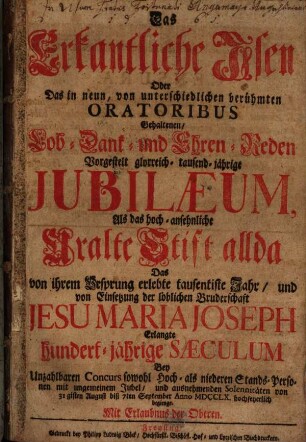 Das
Erkantliche Isen
Oder
Das in neun, von unterschiedlichen berühmten
ORATORIBUS
Gehaltenen/
Lob- Dank- und Ehren-Reden
Vorgestelt glorreich- tausend-jährige
JUBILÆUM,
Als das hoch-ansehnliche
Uralte Stift allda
Das
von ihrem Ursprung erlebte tausentiste Jahr/ und
von Einsetzung der löblichen Bruderschaft
JESU MARIA JOSEPH
Erlangte
hundert-jährige SÆCULUM
Bey
Unzahlbaren Concurs sowohl Hoch- als niederen Stands-Perso-
nen mit ungemeinem Jubel/ und ausnehmenden Solennitäten von
31gisten August biß 7den September Anno MDCCLX. hochfeyerlich
begienge.
Mit Erlaubnus der Oberen.
Freysing/
Gedruckt bey Philipp Ludwig Böck/ Hochfürstl. Bischöfl. Hof- und Lyceums Buchdruckern.